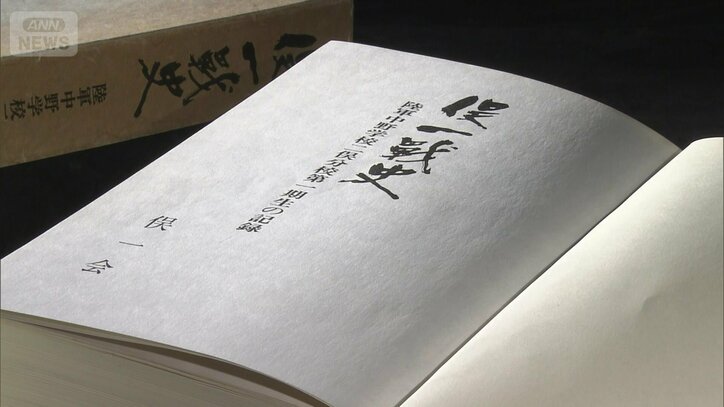 ANN
NEWS
俣一戦史
陸軍中野学校
俣一戦史
陸軍中野学校二俣分校第一期生の記録
俣一会